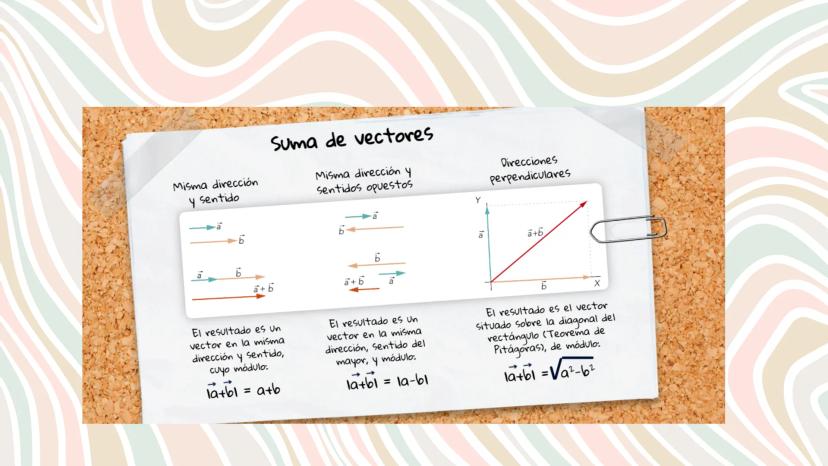 Suma de vectores
Misma dirección
y sentido
a
b
a b
a + b
El resultado es un
vector en la misma
dirección y sentido,
cuyo módulo:
|a+b| = a+b
Misma dirección y
sentidos opuestos
a
b
b
a + b a
El resultado es un
vector en la misma
dirección, sentido del
mayor, y módulo:
|a+b| = |a-b|
Direcciones
perpendiculares
Y
a a+b
b X
El resultado es el vector
situado sobre la diagonal del
rectángulo (Teorema de
Pitágoras), de módulo:
|a+b| = √a²-b²